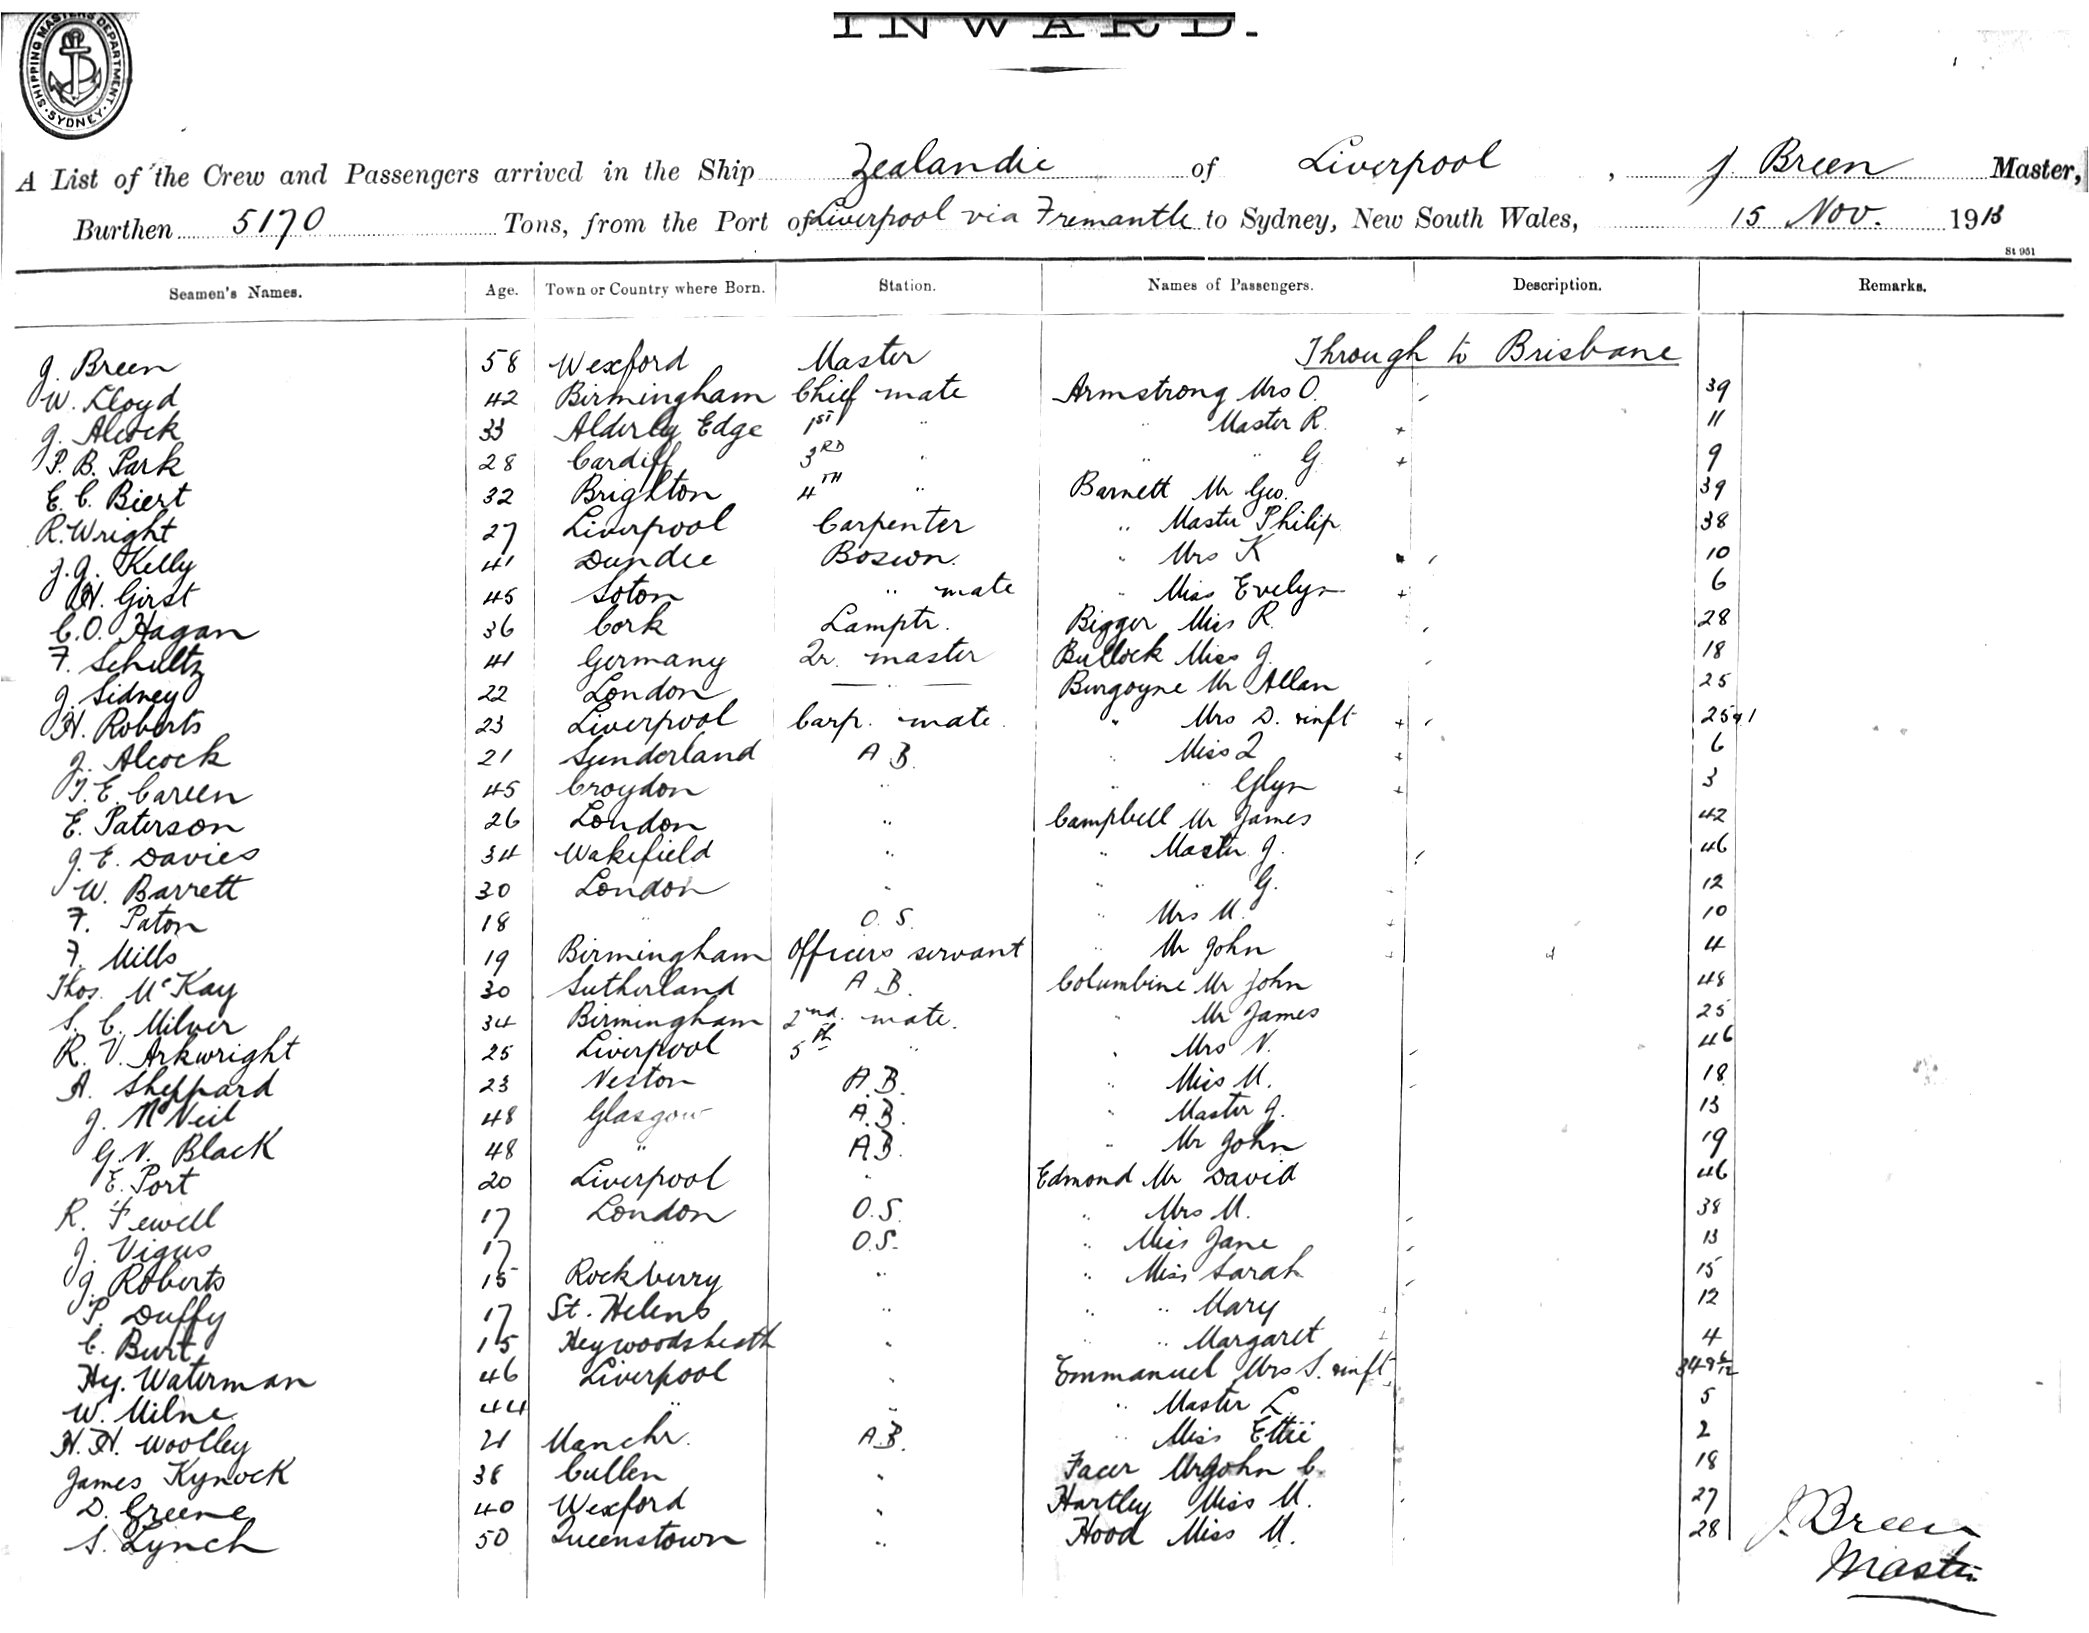 SHIPPING MASTERS DEPARTMENT · SYDNEY ·
INWARD.
A List of the Crew and Passengers arrived in the Ship Zealandic of Liverpool, J. Breen Master,
Burthen 5170 Tons, from the Port of Liverpool via Fremantle to Sydney, New South Wales, 15 Nov. 1913
St 951
Seamen's Names. Age. Town or Country where Born. Station. Names of Passengers. Description. Remarks.
Through to Brisbane
J. Breen 58 Wexford Master
W. Lloyd 42 Birmingham Chief mate Armstrong Mrs O. 39
J. Alcock 33 Alderley Edge 1ST " " Master R. 11
P. B. Park 28 Cardiff 3RD " " " G 9
E. C. Biert 32 Brighton 4TH " Barnett Mr Geo. 39
R. Wright 27 Liverpool Carpenter " Master Philip 38
J. J. Kelly 41 Dundee Boswn. " Mrs K 10
H. Girst 45 Soton " mate " Miss Evelyn 6
C. O. Hagan 36 Cork Lamptr. Bigger Miss R. 28
F. Schultz 41 Germany Qr. master Bullock Miss J. 18
J. Sidney 22 London " Burgoyne Mr Allan 25
H. Roberts 23 Liverpool Carp. mate " Mrs D. & inft 25 & 1
J. Alcock 21 Sunderland A B. " Miss 6
T. E. Careen 45 Croydon " " " Glyn 3
E. Paterson 26 London " Campbell Mr James 42
J. E. Davies 34 Wakefield " " Master J. 46
W. Barrett 30 London " " " G. 12
F. Paton 18 " O. S. " Mrs M. 10
F. Mills 19 Birmingham Officers servant " Mr John 4
Thos. McKay 30 Sutherland A B. Columbine Mr John 48
S. C. Milner 34 Birmingham 2nd. mate. " Mr James 25
R. V. Arkwright 25 Liverpool 5th " " Mrs N. 46
A. Sheppard 23 Neston A.B. " Miss M. 18
J. McNeil 48 Glasgow A.B. " Master J. 13
G. N. Black 48 " A.B. " Mr John 19
E. Port 20 Liverpool " Edmond Mr David 46
R. Fewell 17 London O.S. " Mrs M. 38
J. Vigus 17 " O.S. " Miss Jane 13
J. Roberts 15 Rockberry " " Miss Sarah 15
P. Duffy 17 St. Helens " " " Mary 12
C. Burt 15 Heywoodsheath " " " Margaret 4
Hy. Waterman 46 Liverpool " Emmanuel Mrs S. & inft
W. Milne 44 " " " Master L. 5
H. H. Woolley 21 Manchr. A.B. " Miss Ettie 2
James Kynock 38 Cullen " Facer Mr John C. 18
D. Greene 40 Wexford " Hartley Miss M. 27
S. Lynch 50 Queenstown " Hood Miss M. 28
J. Breen
Master